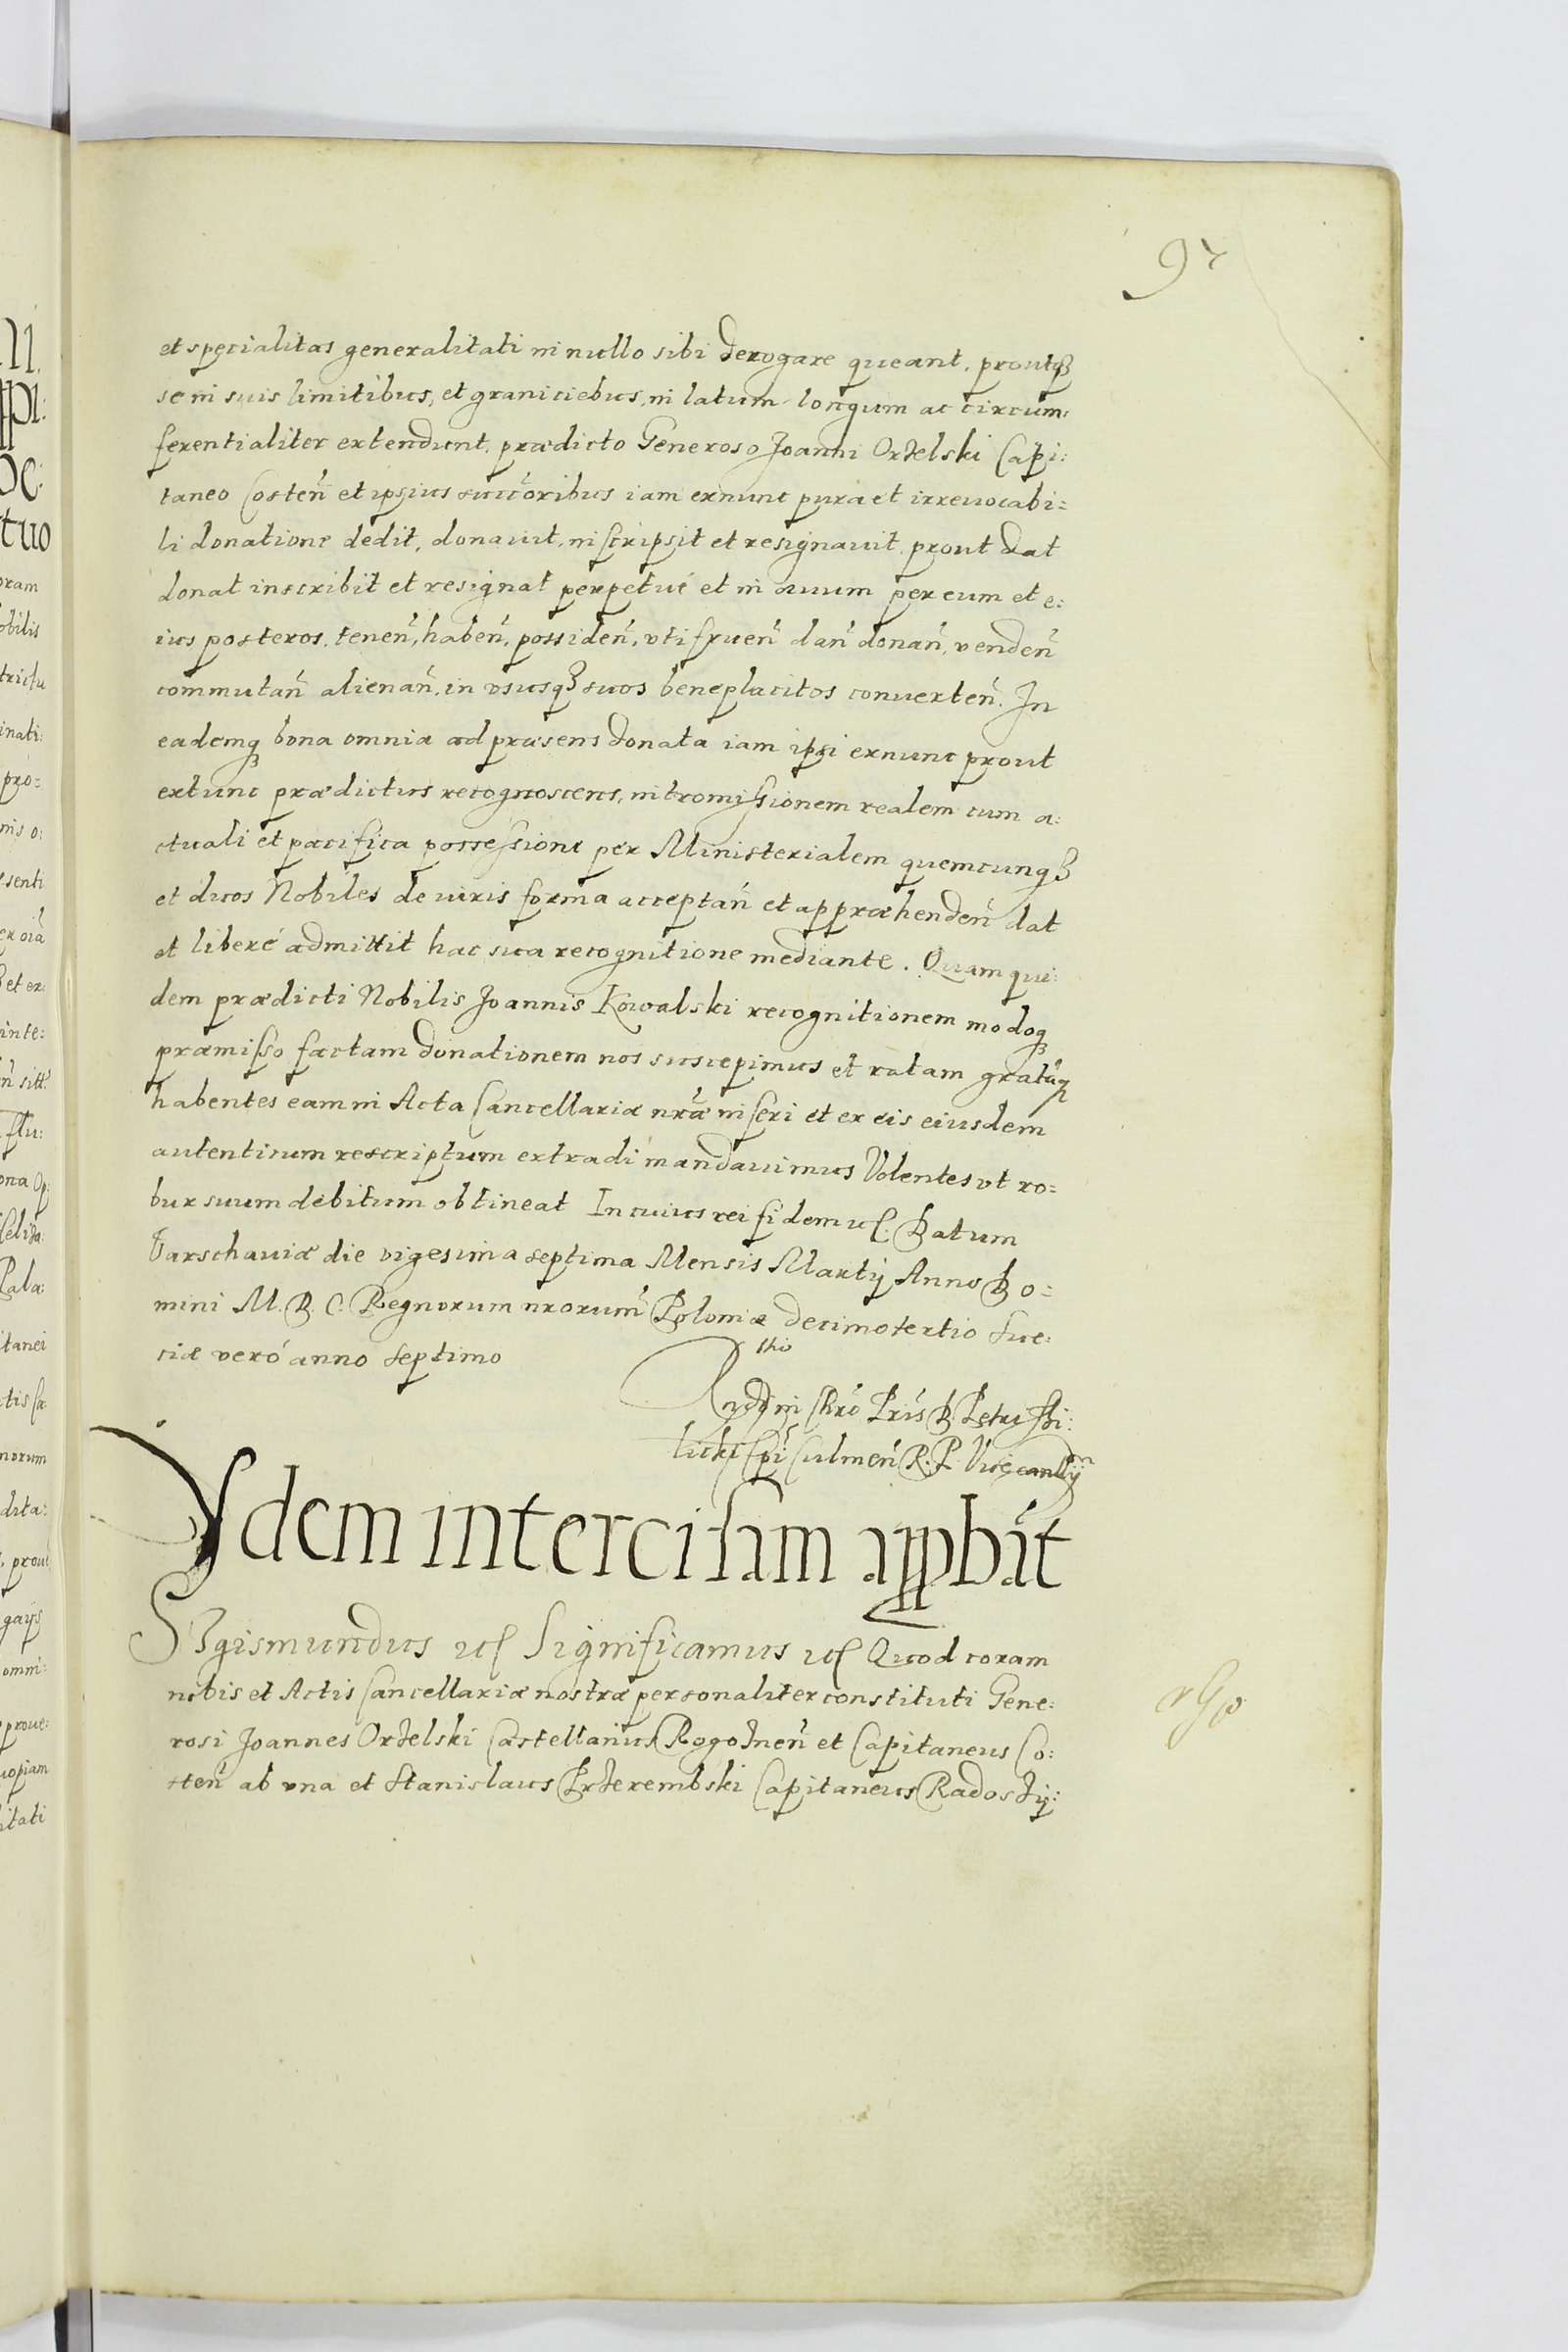 97
et specialitas generalitati in nullo sibi derogare queant, proutq3
se in suis limitibus, et graniciebus, in latum longum ac circum:
ferentialiter extendunt, prædicto Generoso Joanni Orzelski Capi:
taneo Costen̄ et ipsius succ̄oribus iam exnunc pura et irreuocabi=
li donatione dedit, donauit, inscripsit et resignauit, prout dat
donat inscribit et resignat perpetué et in æuum per eum et e:
ius posteros, tenen̄, haben̄, possiden̄, vti fruen̄ dan̄ donan̄, venden̄
commutan̄ alienan̄, in vsusq3 suos beneplacitos conuerten̄. In
eademq3 bona omnia ad præsens donata iam ipsi exnunc prout
extunc prædictus recognoscens, intromissionem realem cum a:
ctuali et pacifica possessione per Ministerialem quemcunq3
et duos Nobiles de iuris forma acceptan̄ et appræhenden̄ dat
et liberé admittit hac sua recognitione mediante. Quam qui:
dem prædicti Nobilis Joannis Kowalski recognitionem modoq3
præmisso factam donationem nos suscepimus et ratam gratāq3
habentes eam in Acta Cancellariæ nrǣ inseri et ex eis eiusdem
autenticum rescriptum extradi mandauimus Volentes vt ro=
bur suum debitum obtineat In cuius rei fidem etc. Datum
Varschauiæ die vigesima septima Mensis Martij Anno Do=
mini M. D. C. Regnorum nrorum̄ Poloniæ decimotertio Sue:
ciæ veró anno septimo
Petri
licki Culmen̄ R. P.
Ydem intercisam appbāt
Sigismundus etc Significamus etc Quod coram
nobis et Actis Cancellariæ nostræ personaliter constituti Gene:
rosi Joannes Orzelski Castellanus Rogoznen̄ et Capitaneus Co:
sten̄ ab vna et Stanislaus Przerembski Capitaneus Radoszij: